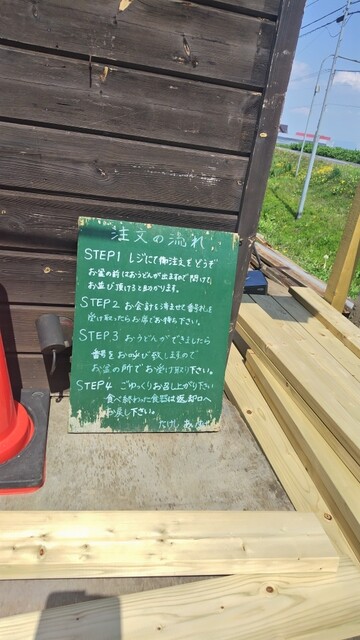 注文の流れ
STEP1 レジにて御注文をどうぞ
お盆の前はおうどんが出ますので開けて、
お並び頂けると助かります。
STEP2 お会計を済ませて番号札を
受け取ったらお席でお待ち下さい。
STEP3 おうどんができましたら
番号をお呼び致しますので
お盆の所でお受け取り下さい。
STEP4 ごゆっくりお召し上がり下さい
食べ終わった食器は返却口へ
お戻し下さい。